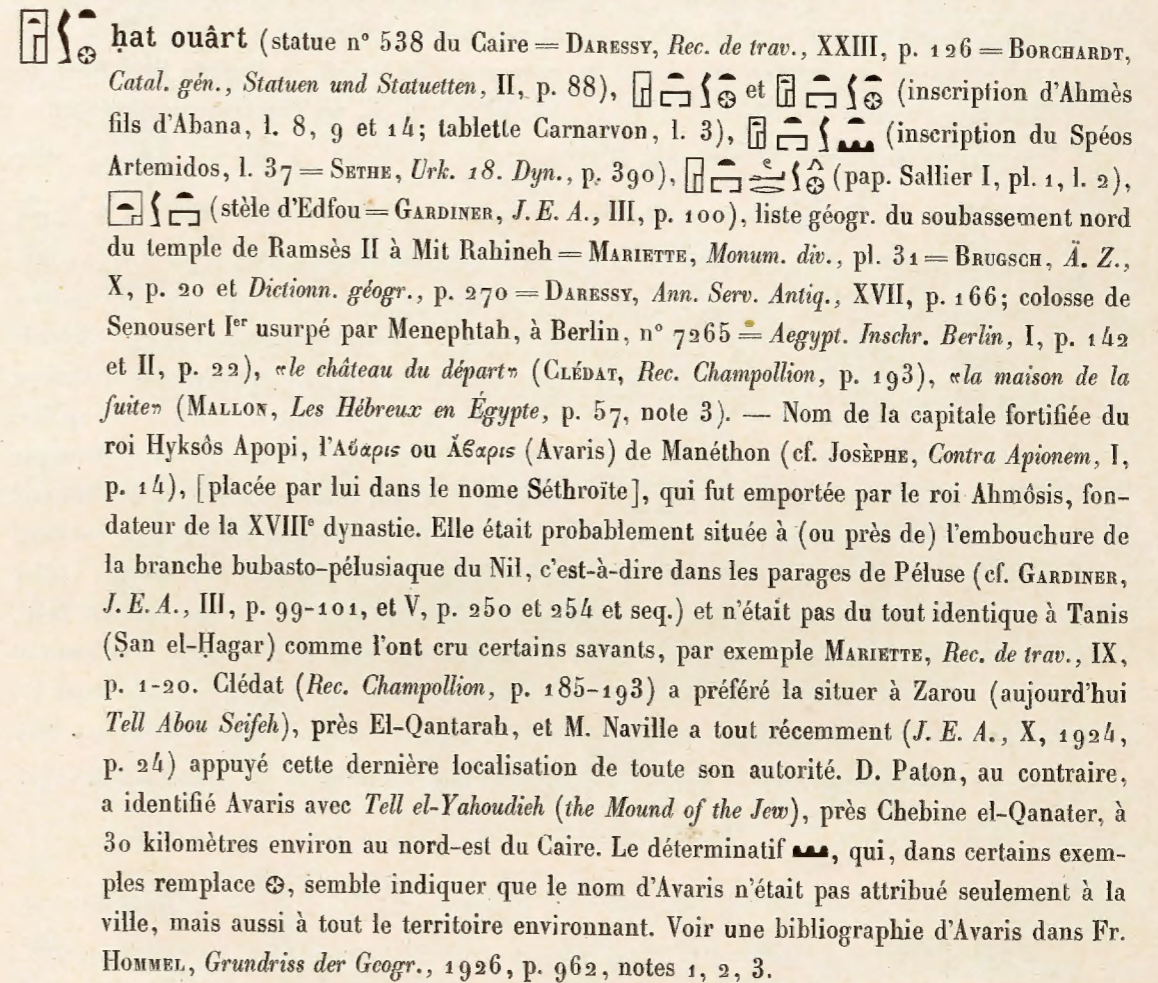 ḥat ouârt (statue n° 538 du Caire = DARESSY, Rec. de trav., XXIII, p. 126 = BORCHARDT,
Catal. gén., Statuen und Statuetten, II, p. 88), et (inscription d'Ahmès
fils d'Abana, l. 8, 9 et 14; tablette Carnarvon, l. 3), (inscription du Spéos
Artemidos, l. 37 = SETHE, Urk. 18. Dyn., p. 390), (pap. Sallier I, pl. 1, l. 2),
(stèle d'Edfou = GARDINER, J. E. A., III, p. 100), liste géogr. du soubassement nord
du temple de Ramsès II à Mit Rahineh = MARIETTE, Monum. div., pl. 31 = BRUGSCH, Ä. Z.,
X, p. 20 et Dictionn. géogr., p. 270 = DARESSY, Ann. Serv. Antiq., XVII, p. 166; colosse de
Senousert Ier usurpé par Menephtah, à Berlin, n° 7265 = Aegypt. Inschr. Berlin, I, p. 142
et II, p. 22), «le château du départ» (CLÉDAT, Rec. Champollion, p. 193), «la maison de la
fuite» (MALLON, Les Hébreux en Égypte, p. 57, note 3). — Nom de la capitale fortifiée du
roi Hyksôs Apopi, l'Αὔαρις ou Ἄβαρις (Avaris) de Manéthon (cf. JOSÈPHE, Contra Apionem, I,
p. 14), [placée par lui dans le nome Séthroïte], qui fut emportée par le roi Ahmôsis, fon-
dateur de la XVIIIe dynastie. Elle était probablement située à (ou près de) l'embouchure de
la branche bubasto-pélusiaque du Nil, c'est-à-dire dans les parages de Péluse (cf. GARDINER,
J. E. A., III, p. 99-101, et V, p. 250 et 254 et seq.) et n'était pas du tout identique à Tanis
(Ṣan el-Ḥagar) comme l'ont cru certains savants, par exemple MARIETTE, Rec. de trav., IX,
p. 1-20. Clédat (Rec. Champollion, p. 185-193) a préféré la situer à Zarou (aujourd'hui
Tell Abou Seifeh), près El-Qantarah, et M. Naville a tout récemment (J. E. A., X, 1924,
p. 24) appuyé cette dernière localisation de toute son autorité. D. Paton, au contraire,
a identifié Avaris avec Tell el-Yahoudieh (the Mound of the Jew), près Chebine el-Qanater, à
30 kilomètres environ au nord-est du Caire. Le déterminatif 𓈉, qui, dans certains exem-
ples remplace 𓊖, semble indiquer que le nom d'Avaris n'était pas attribué seulement à la
ville, mais aussi à tout le territoire environnant. Voir une bibliographie d'Avaris dans Fr.
HOMMEL, Grundriss der Geogr., 1926, p. 962, notes 1, 2, 3.